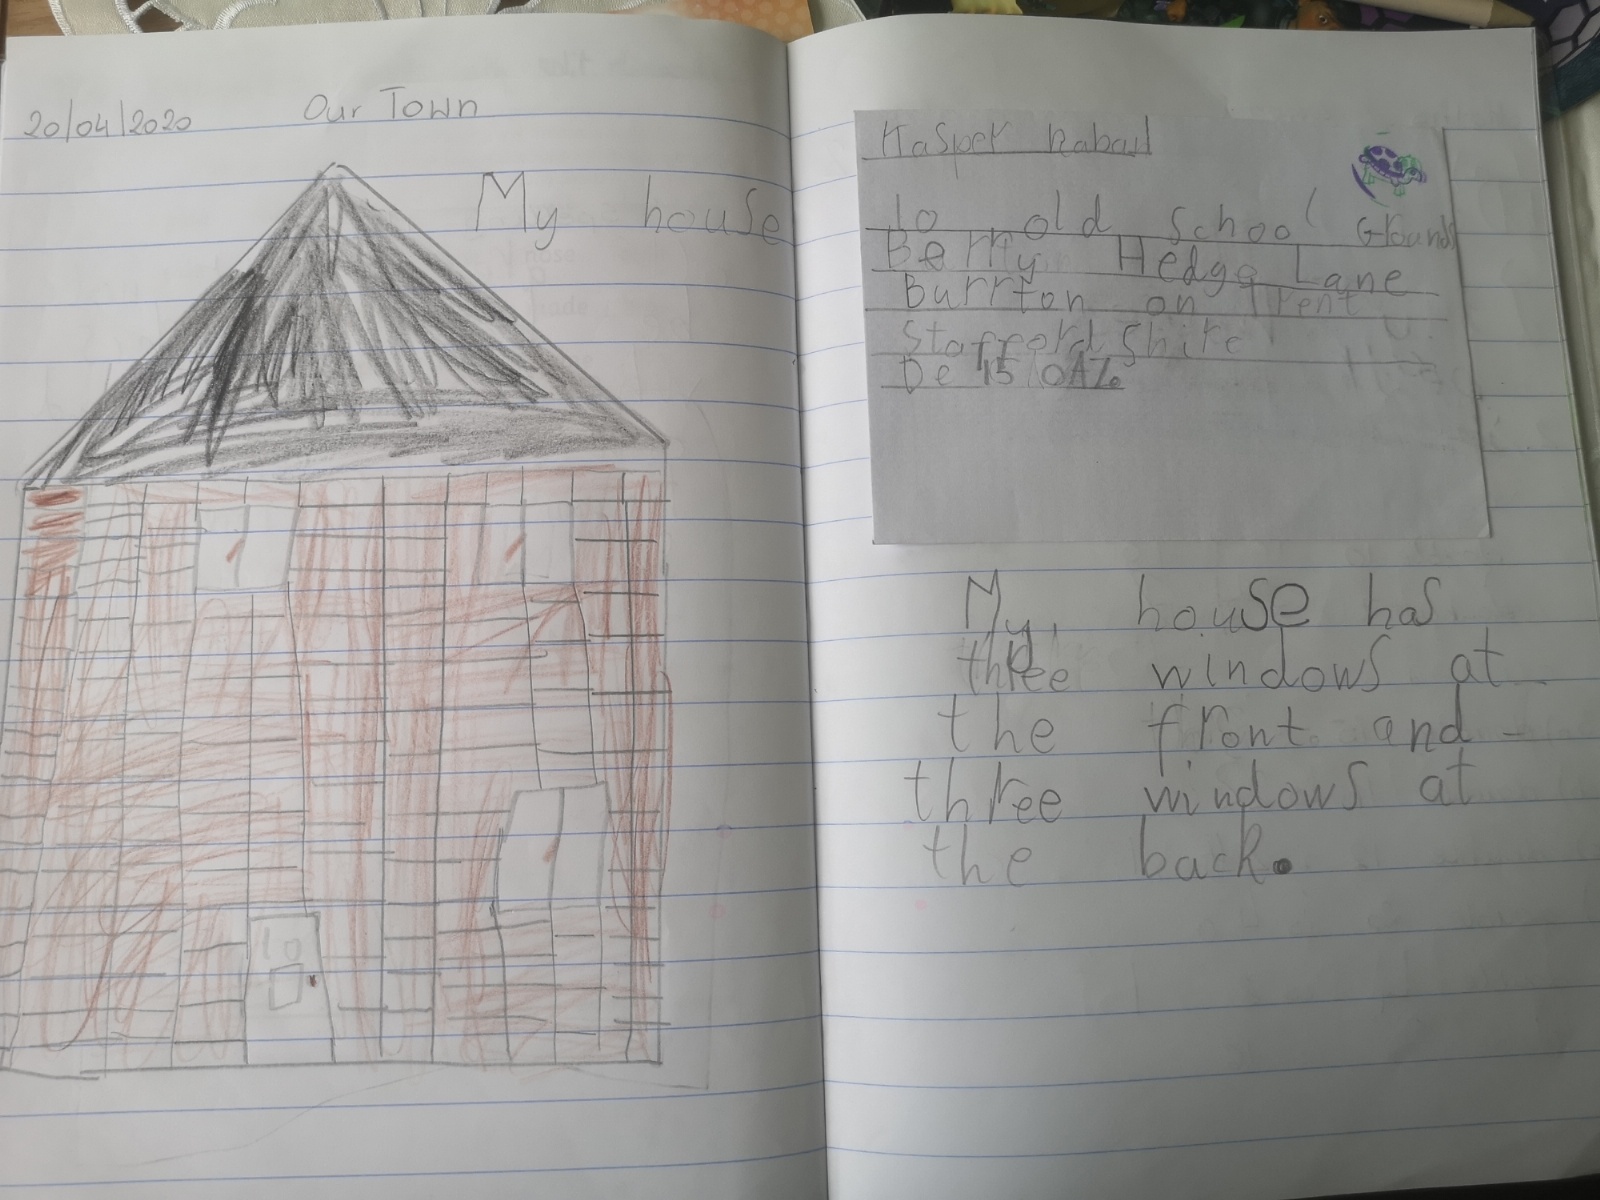 20/04/2020 Our Town
My house
10
Kasper
10 old school Grounds
Berry Hedge Lane
Burrton on Trent
Stafford Shire
De 15 0AZ
My house has
three windows at
the front and
three windows at
the back.